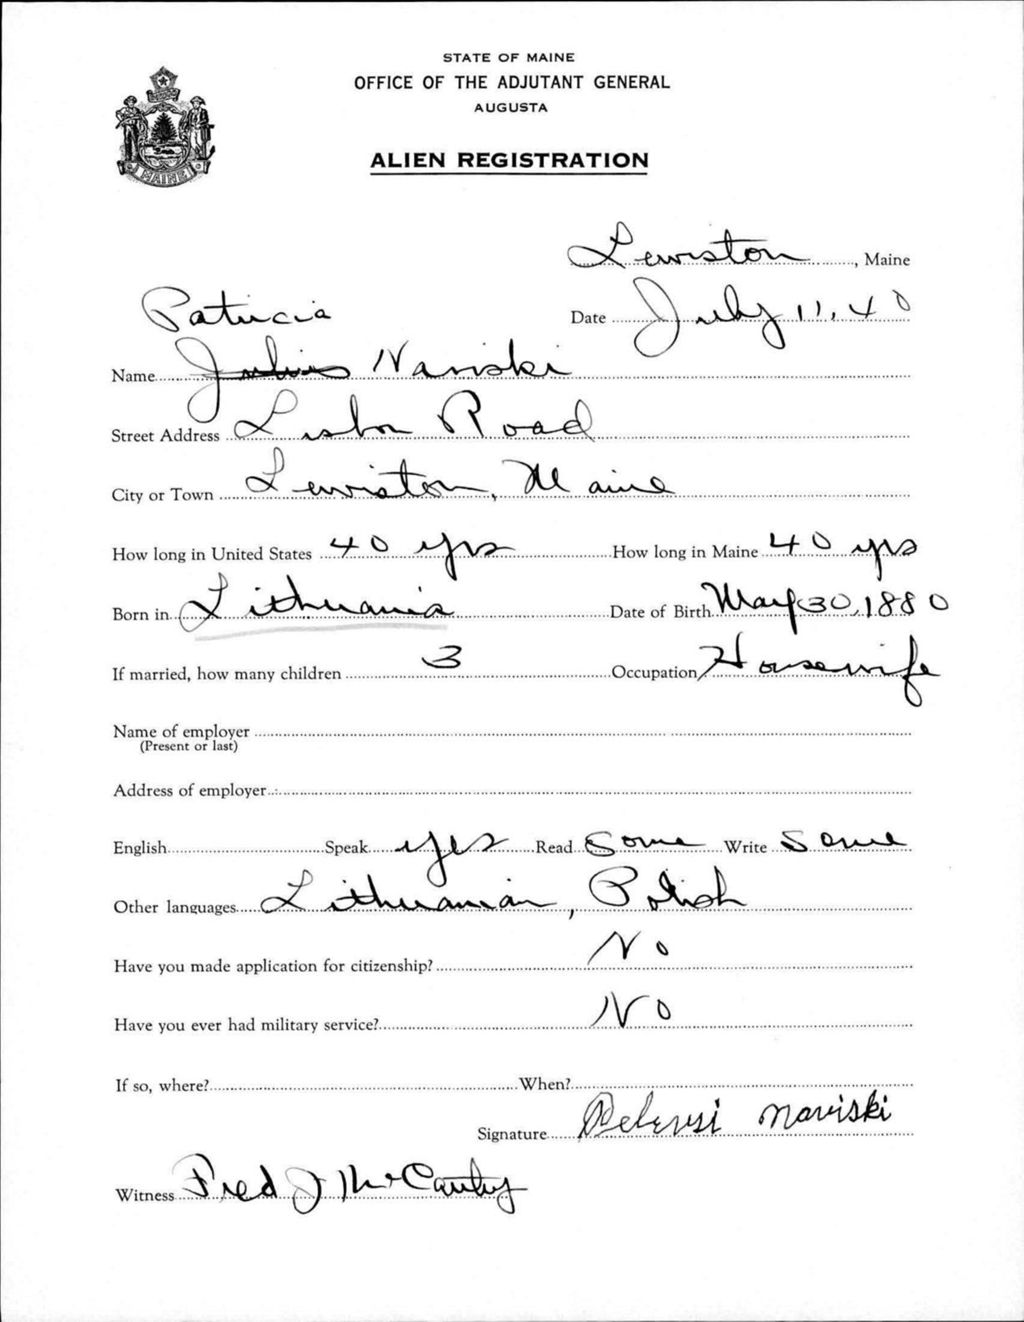 STATE OF MAINE
OFFICE OF THE ADJUTANT GENERAL
AUGUSTA
MAINE
ALIEN REGISTRATION
Lewiston, Maine
Patricia
Date July 11, 40
Name Julius Naviski
Street Address Lisbon Road
City or Town Lewiston, Maine
How long in United States 40 yrs How long in Maine 40 yrs
Born in Lithuania Date of Birth May 30, 1880
If married, how many children 3 Occupation Housewife
Name of employer
(Present or last)
Address of employer
English Speak yes Read Some Write Some
Other languages Lithuanian, Polish
Have you made application for citizenship? No
Have you ever had military service? No
If so, where? When?
Signature Naviski
Witness Fred J McCarthy